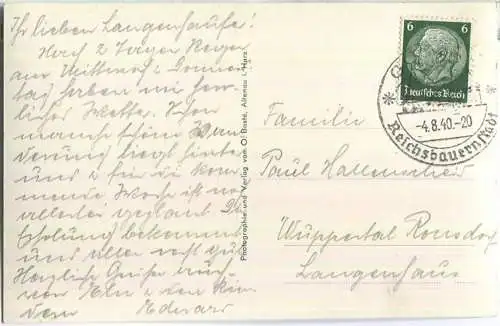 Ihr lieben Langenhaufe!
Nach 2 Tagen Regen
am Mittwoch u. Donners-
tag haben wir herr-
liches Wetter. Schon
manch schöne Wan-
derung liegt hinter
uns u. für die kom-
mende Woche ist noch
allerlei geplant. Die
Erholung bekommt
uns allen recht gut.
Herzliche Grüße
von u. den Kin-
dern Eduard
Photographie und Verlag von O. Bosté, Altenau i. Harz
6 6
Deutsches Reich
-4.8.40.-20
Reichsbauernstadt
Familie
Paul
Wuppertal Ronsdorf
Langenhaus